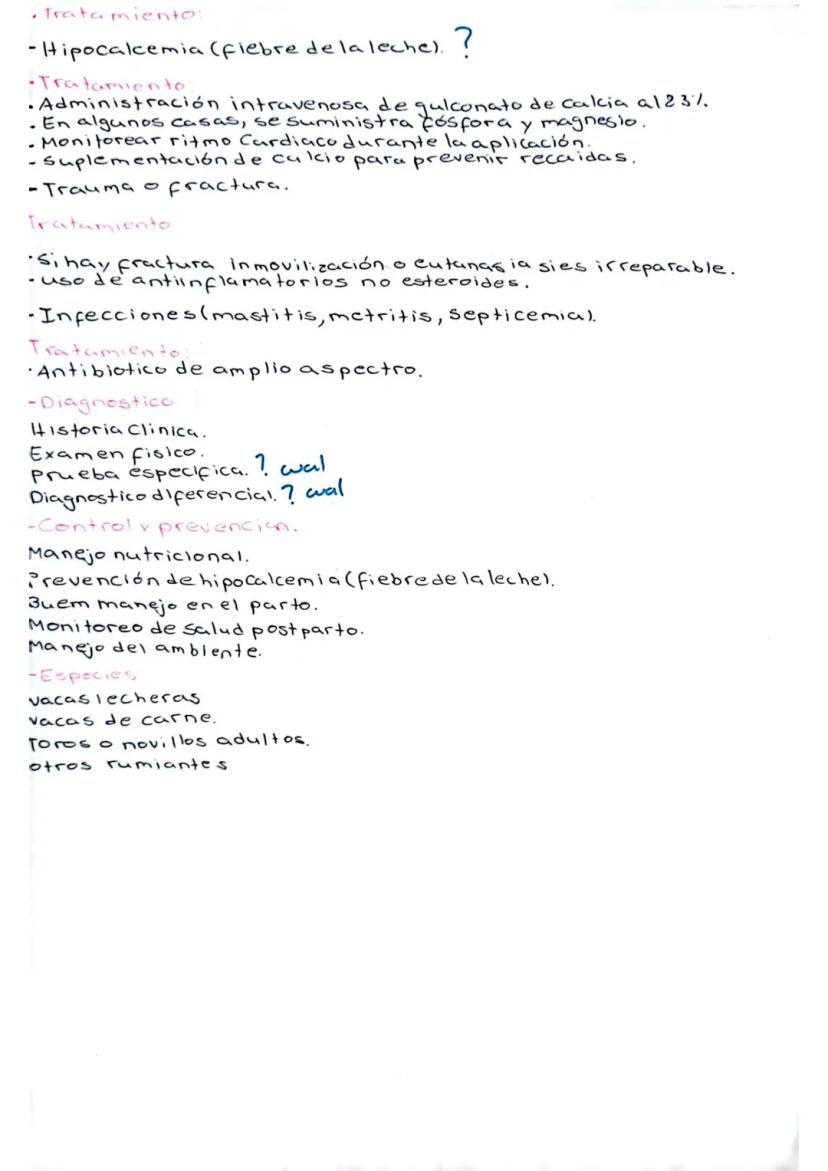 . Tratamiento:
- Hipocalcemia (fiebre de la leche). ?
- Tratamiento:
. Administración intravenosa de gulconato de calcia al 23%.
. En algunos casas, se suministra fósfora y magnesio.
. Monitorear ritmo Cardiaco durante la aplicación.
- Suplementación de calcio para prevenir recaidas.
- Trauma o fractura.
Tratamiento
. Si hay fractura inmovilización o eutanasia si es irreparable.
- uso de antiinflamatorios no esteroides.
. Infecciones (mastitis, metritis, septicemia).
Tratamiento:
. Antibiotico de amplio aspectro.
- Diagnostico
Historia Clinica.
Examen fisico.
Prueba especifica. ? cual
Diagnostico diferencial. ? cual
- Control y prevencion.
Manejo nutricional.
Prevención de hipocalcemia (fiebre de la leche).
Buem manejo en el parto.
Monitoreo de salud postparto.
Manejo del ambiente.
- Especies
vacas lecheras
vacas de carne.
Toros o novillos adultos.
otros rumiantes